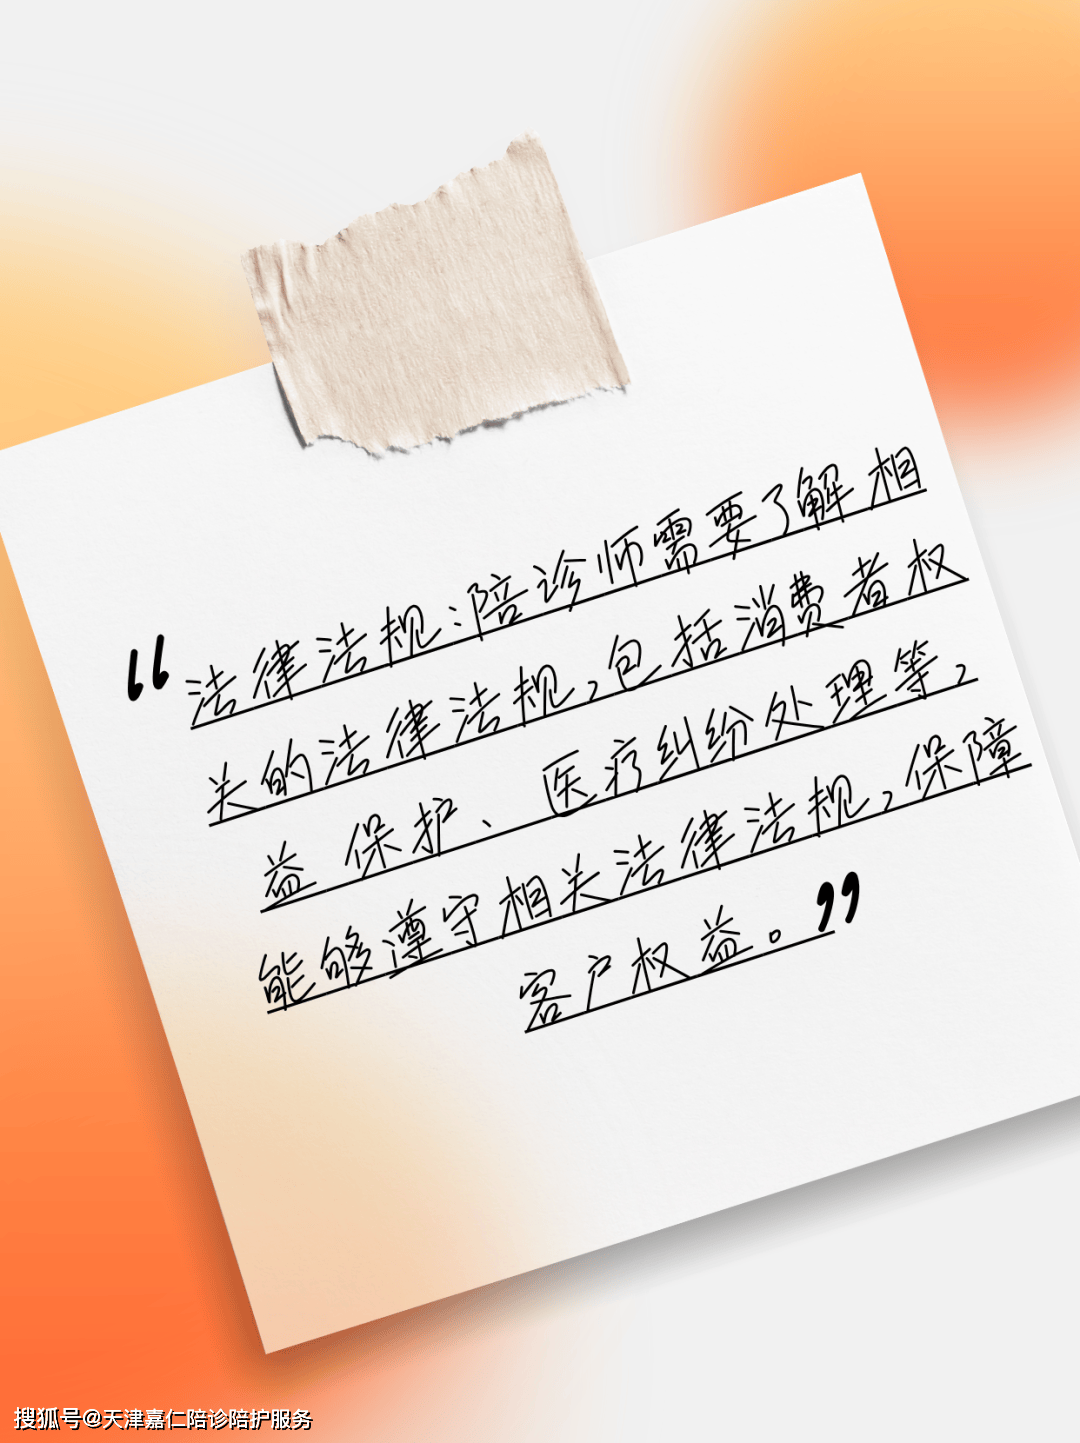 “法律法规:陪诊师需要了解相
关的法律法规,包括消费者权
益保护、医疗纠纷处理等,
能够遵守相关法律法规,保障
客户权益。”
搜狐号@天津嘉仁陪诊陪护服务